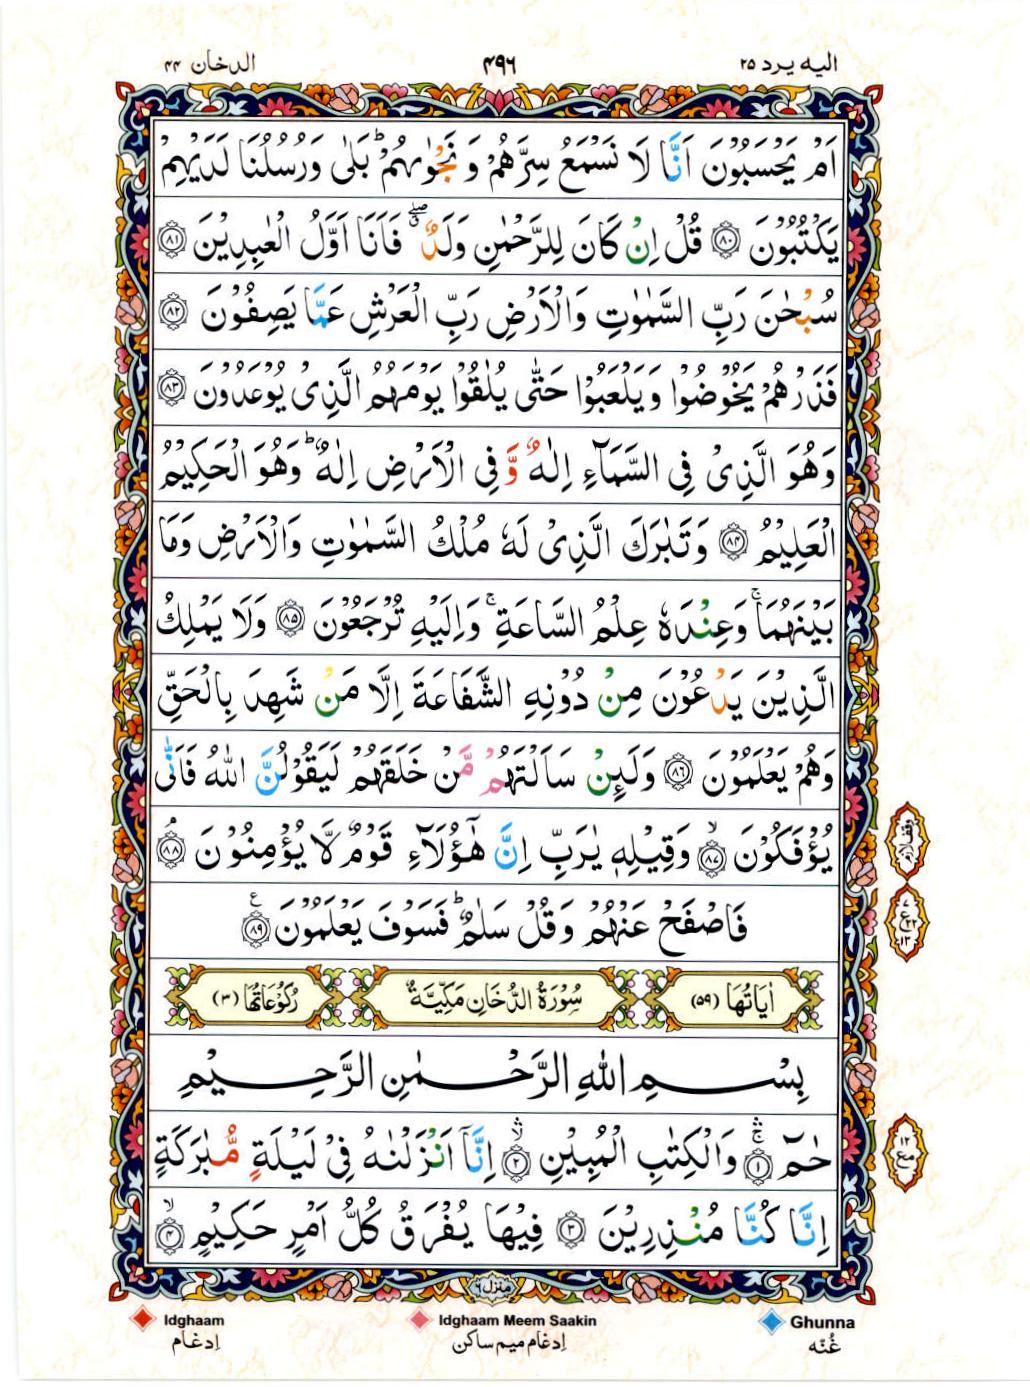 الدخان ۴۴ ۴۹۶ الیه یرد ۲۵
اَمْ یَحْسَبُوْنَ اَنَّا لَا نَسْمَعُ سِرَّهُمْ وَ نَجْوٰىهُمْ ؕ بَلٰی وَرُسُلُنَا لَدَیْهِمْ
یَكْتُبُوْنَ ﴿۸۰﴾ قُلْ اِنْ كَانَ لِلرَّحْمٰنِ وَلَدٌ ۖۗ فَاَنَا اَوَّلُ الْعٰبِدِیْنَ ﴿۸۱﴾
سُبْحٰنَ رَبِّ السَّمٰوٰتِ وَالْاَرْضِ رَبِّ الْعَرْشِ عَمَّا یَصِفُوْنَ ﴿۸۲﴾
فَذَرْهُمْ یَخُوْضُوْا وَیَلْعَبُوْا حَتّٰی یُلٰقُوْا یَوْمَهُمُ الَّذِیْ یُوْعَدُوْنَ ﴿۸۳﴾
وَهُوَ الَّذِیْ فِی السَّمَآءِ اِلٰهٌ وَّ فِی الْاَرْضِ اِلٰهٌ ؕ وَهُوَ الْحَكِیْمُ
الْعَلِیْمُ ﴿۸۴﴾ وَتَبٰرَكَ الَّذِیْ لَهٗ مُلْكُ السَّمٰوٰتِ وَالْاَرْضِ وَمَا
بَیْنَهُمَا ۚ وَعِنْدَهٗ عِلْمُ السَّاعَةِ ۚ وَاِلَیْهِ تُرْجَعُوْنَ ﴿۸۵﴾ وَلَا یَمْلِكُ
الَّذِیْنَ یَدْعُوْنَ مِنْ دُوْنِهِ الشَّفَاعَةَ اِلَّا مَنْ شَهِدَ بِالْحَقِّ
وَهُمْ یَعْلَمُوْنَ ﴿۸۶﴾ وَلَئِنْ سَاَلْتَهُمْ مَّنْ خَلَقَهُمْ لَیَقُوْلُنَّ اللّٰهُ فَاَنّٰی
یُؤْفَكُوْنَ ﴿۸۷﴾ ۙ وَقِیْلِهٖ یٰرَبِّ اِنَّ هٰۤؤُلَآءِ قَوْمٌ لَّا یُؤْمِنُوْنَ ﴿۸۸﴾ ۘ
وقف لازم
فَاصْفَحْ عَنْهُمْ وَقُلْ سَلٰمٌ ؕ فَسَوْفَ یَعْلَمُوْنَ ﴿۸۹﴾ ع
۷ ع ۲۲ ۱۳
اٰیَاتُهَا (۵۹) سُوْرَةُ الدُّخَانِ مَكِّیَّةٌ رُكُوْعَاتُهَا (۳)
بِسْمِ اللّٰهِ الرَّحْمٰنِ الرَّحِیْمِ
حٰمٓ ﴿۱﴾ ۛۚ وَالْكِتٰبِ الْمُبِیْنِ ﴿۲﴾ ۙۛ اِنَّاۤ اَنْزَلْنٰهُ فِیْ لَیْلَةٍ مُّبٰرَكَةٍ
۱۲ مع
اِنَّا كُنَّا مُنْذِرِیْنَ ﴿۳﴾ فِیْهَا یُفْرَقُ كُلُّ اَمْرٍ حَكِیْمٍ ﴿۴﴾ ۙ
منزل ۶
Idghaam Idghaam Meem Saakin Ghunna
اِدغام اِدغام میم ساکن غُنّہ